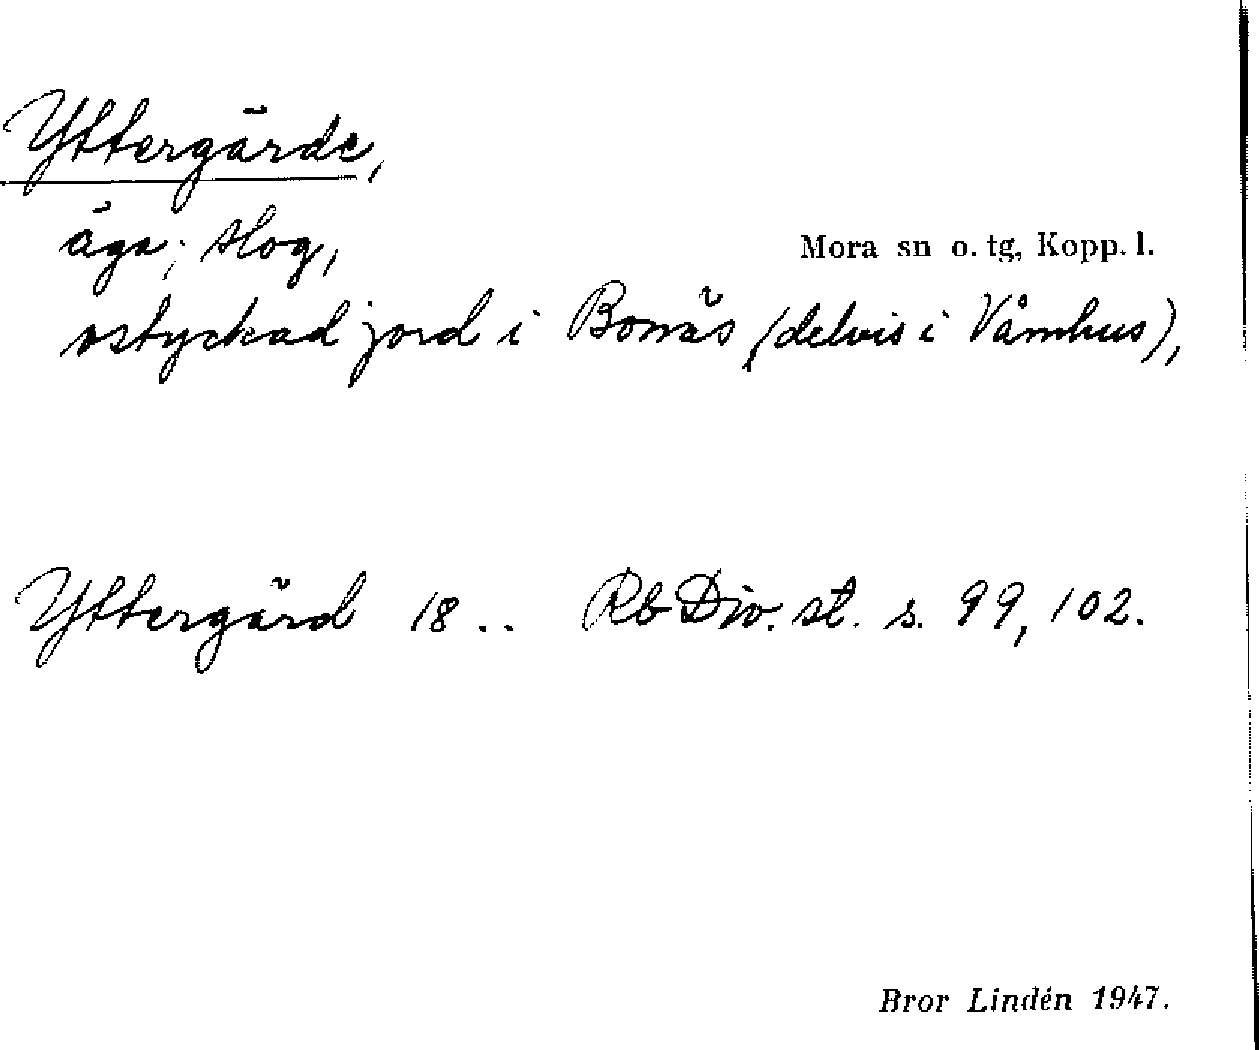 Yttergärde,
äga; slog,
Mora sn o. tg, Kopp. l.
ostyckad jord i Bonäs (delvis i Våmhus),
Yttergärd 18.. Rb Div. st. s. 99, 102.
Bror Lindén 1947.